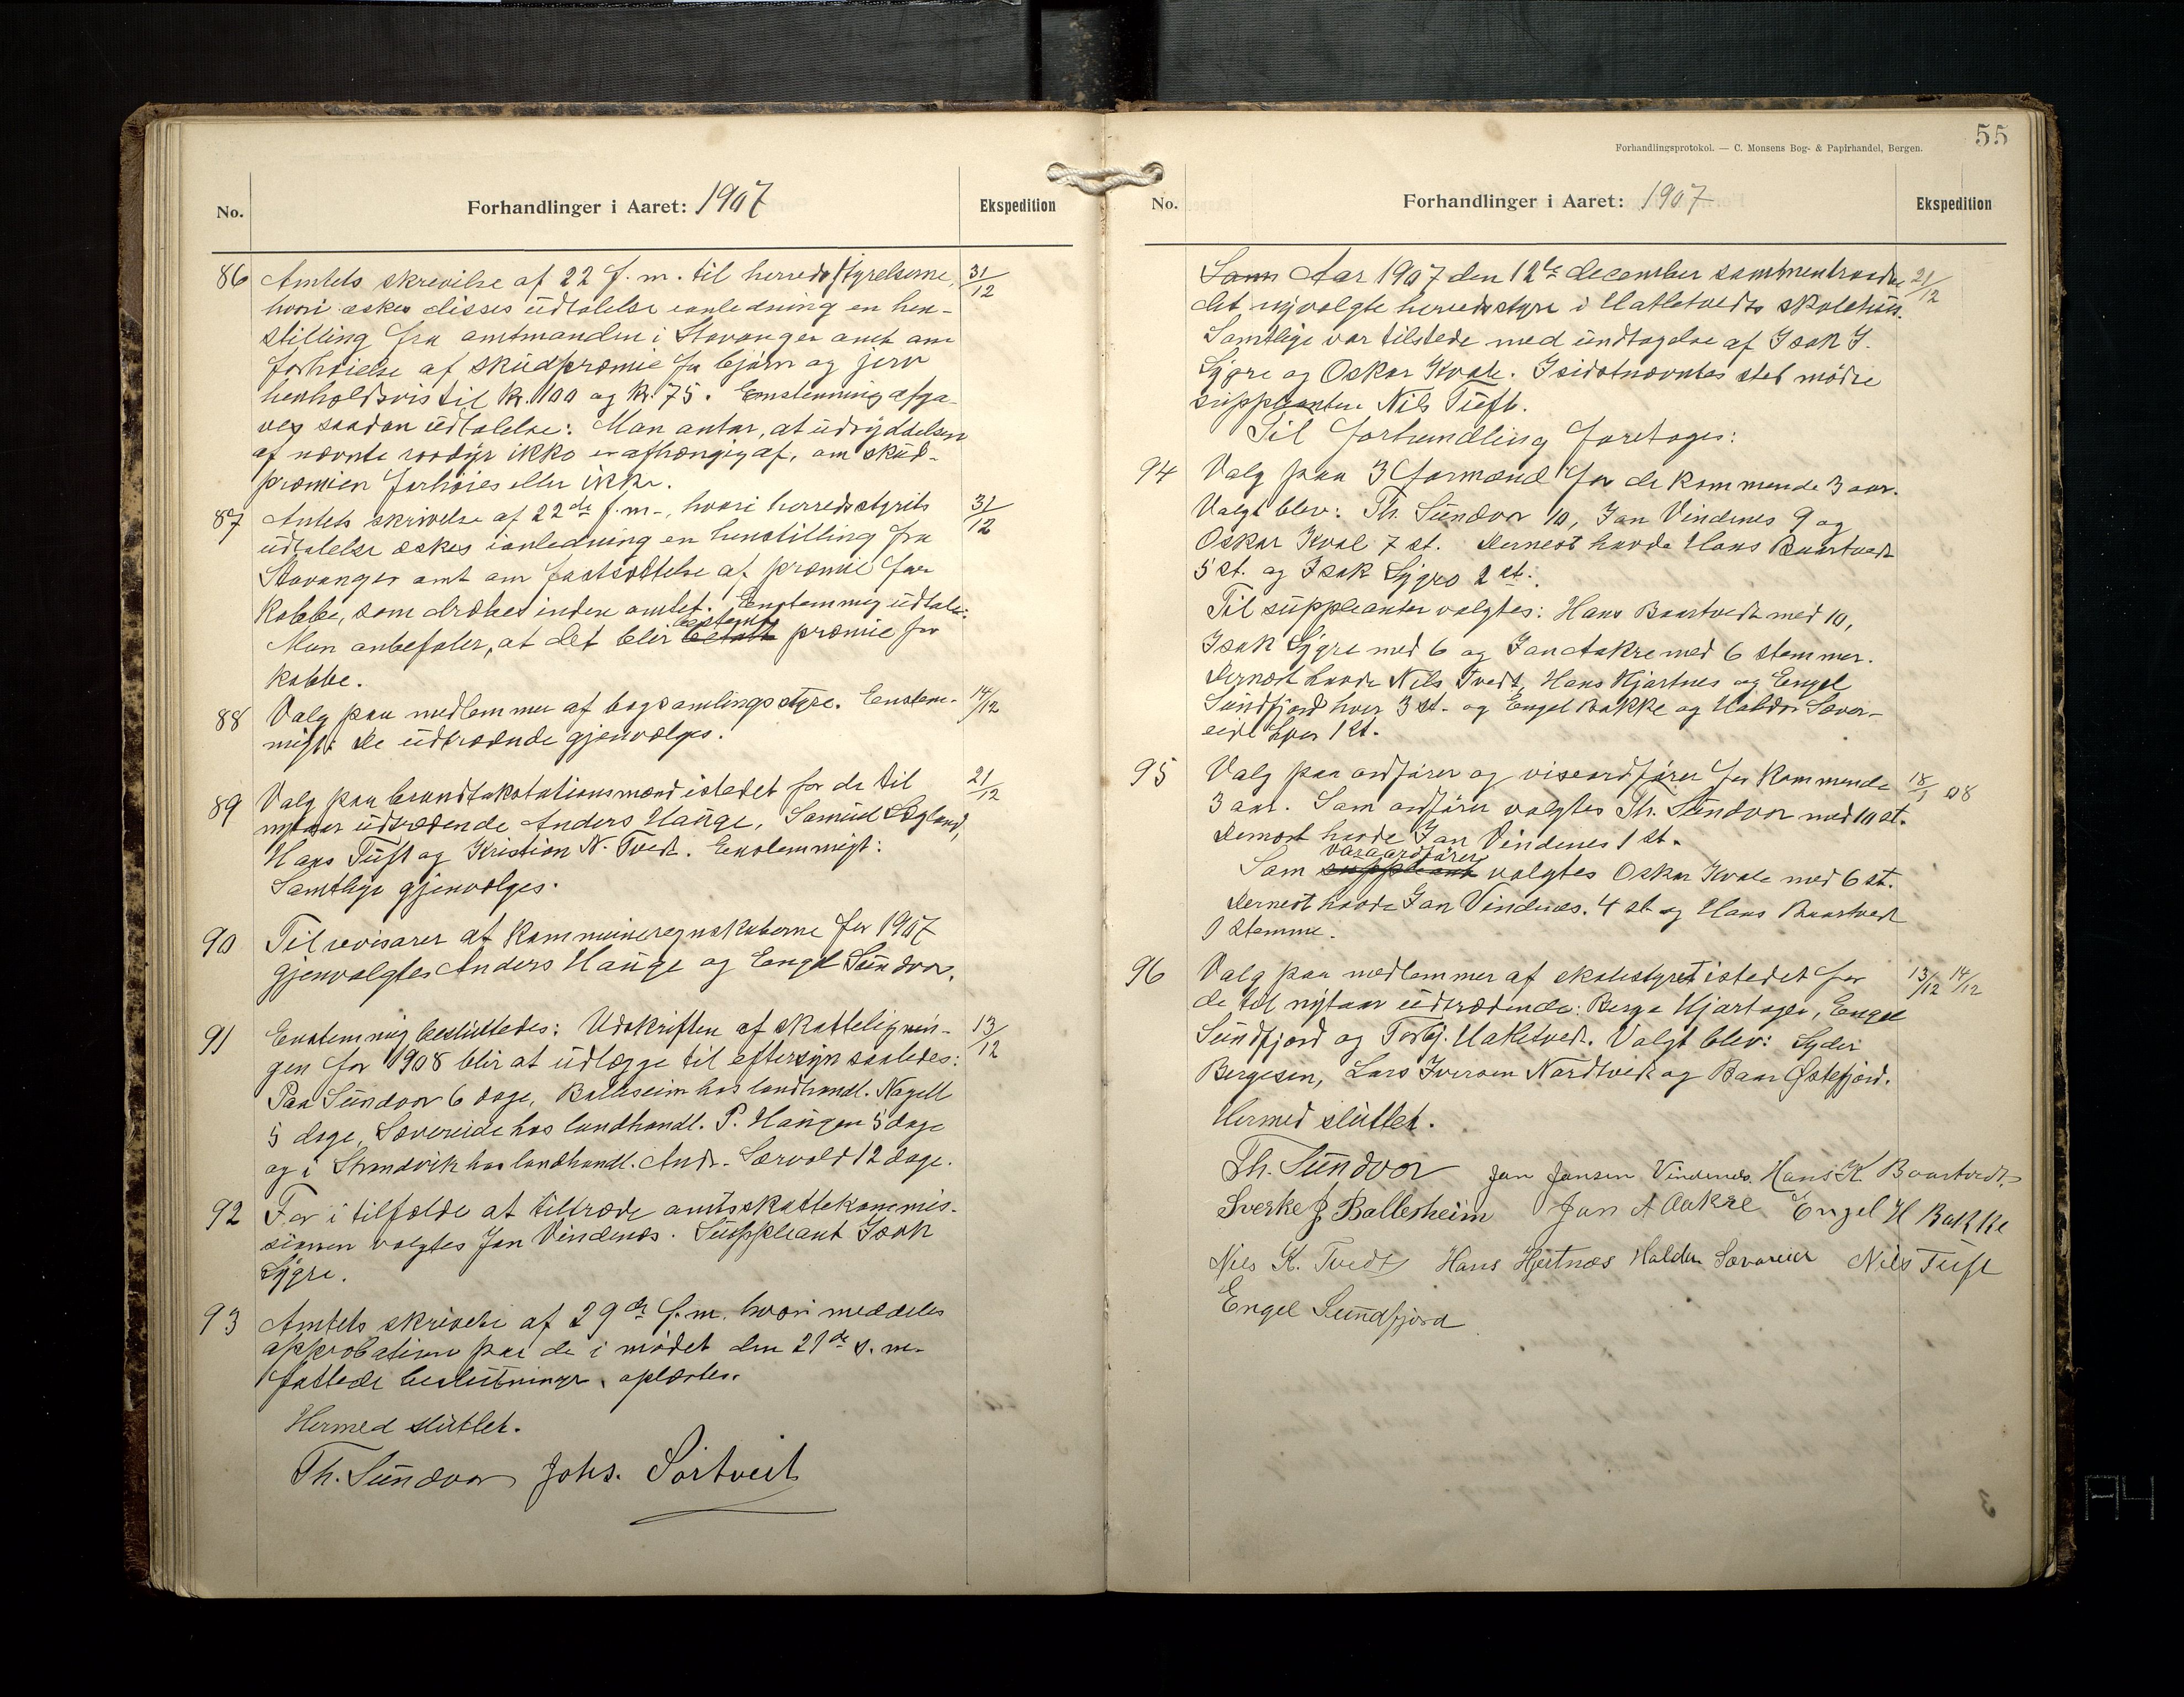 No.
Forhandlinger i Aaret: 1907
Ekspedition
86 Amtets skrivelse af 22 f.m. til herredsstyrelserne, 31/12
hvori æskes disses udtalelse ianledning en hen-
stilling fra amtmanden i Stavanger amt om
forhøielse af skudpræmie for bjørn og jerv
henholdsvis til kr. 100 og kr. 75. Enstemmig afga-
ves saadan udtalelse: Man antar, at udryddelsen
af nævnte rovdyr ikke er afhængig af, om skud-
præmien forhøies eller ikke.
87 Amtets skrivelse af 22de f.m., hvori herredsstyrets 31/12
udtalelse æskes ianledning en henstilling fra
Stavanger amt om fastsættelse af præmie for
kobbe, som dræbes inden amtet. Enstemmig udtales:
Man anbefaler, at det blir bestemt præmie for
kobbe.
88 Valg paa medlemmer af bogsamlingsstyre. Enstem- 14/12
migt: De udtrædende gjenvælges.
89 Valg paa brandtakstationsmænd istedet for de til 21/12
nytaar udtrædende Anders Hauge, Samuel Légland,
Hans Tuft og Kristian N. Tvedt. Enstemmigt:
Samtlige gjenvælges.
90 Til revisorer af kommuneregnskaberne for 1907
gjenvalgtes Anders Hauge og Engel Sundvor.
91 Enstemmig besluttedes: Udskriften af skattelignin- 13/12
gen for 1908 blir at udlægge til eftersyn saaledes:
Paa Sundvor 6 dage, Balleseim hos landhandl. Nagell
5 dage, Sævereide hos landhandl. P. Haugen 5 dage
og i Strandvik hos landhandl. Andr. Særvold 12 dage.
92 For i tilfælde at tiltræde amtsskattekommis-
sionen valgtes Jan Vindenes. Suppleant Isak
Lygre.
93 Amtets skrivelse af 29de f.m. hvori meddeles
approbation paa de i mødet den 21de s.m.
fattede beslutninger, oplæstes.
Hermed sluttet.
Th. Sundvor Johs. Sortveit
55
Forhandlingsprotokol. — C. Monsens Bog- & Papirhandel, Bergen.
No.
Forhandlinger i Aaret: 1907
Ekspedition
Samm Aar 1907 den 12te december sammentraadte 21/12
det nyvalgte herredsstyre i Hatletvedts skolehus.
Samtlige var tilstede med undtagelse af Isak J.
Lygre og Oskar Kvale. I sidstnævntes sted mødte
suppleanten Nils Tuft.
Til forhandling foretoges:
94 Valg paa 3 formænd for de kommende 3 aar.
Valgt blev: Th. Sundvor 10, Jan Vindenes 9 og
Oskar Kvale 7 st. Dernest havde Hans Baartvedt
5 st. og Isak Lygre 2 st.
Til suppleanter valgtes: Hans Baartvedt med 10,
Isak Lygre med 6 og Jan Aakre med 6 stemmer.
Dernæst havde Nils Tvedt, Hans Hjartnes og Engel
Sundfjord hver 3 st. og Engel Bakke og Haldor Sæver-
eide hver 1 st.
95 Valg paa ordfører og viseordfører for kommende 18/1 08
3 aar. Som ordfører valgtes Th. Sundvor med 10 st.
Dernæst havde Jan Vindenes 1 st.
varaordfører
Som suppleant valgtes Oskar Kvale med 6 st.
Dernest havde Jan Vindenes 4 st. og Hans Baartvedt
1 stemme.
96 Valg paa medlemmer af skolestyret istedet for 13/12 14/12
de til nytaar udtrædende: Berge Hjartager, Engel
Sundfjord og Torbj. Hatletvedt. Valgt blev: Lyder
Bergesen, Lars Iversen Nordtvedt og Baar Østefjord.
Hermed sluttet.
Th. Sundvor Jan Jansen Vindenes. Hans K. Baartvedt
Sverke J Ballesheim Jan A Aakre Engel H Bakke
Nils K. Tvedt Hans Hjertnæs Haldor Sævareid Nils Tuft
Engel Sundfjord
A4